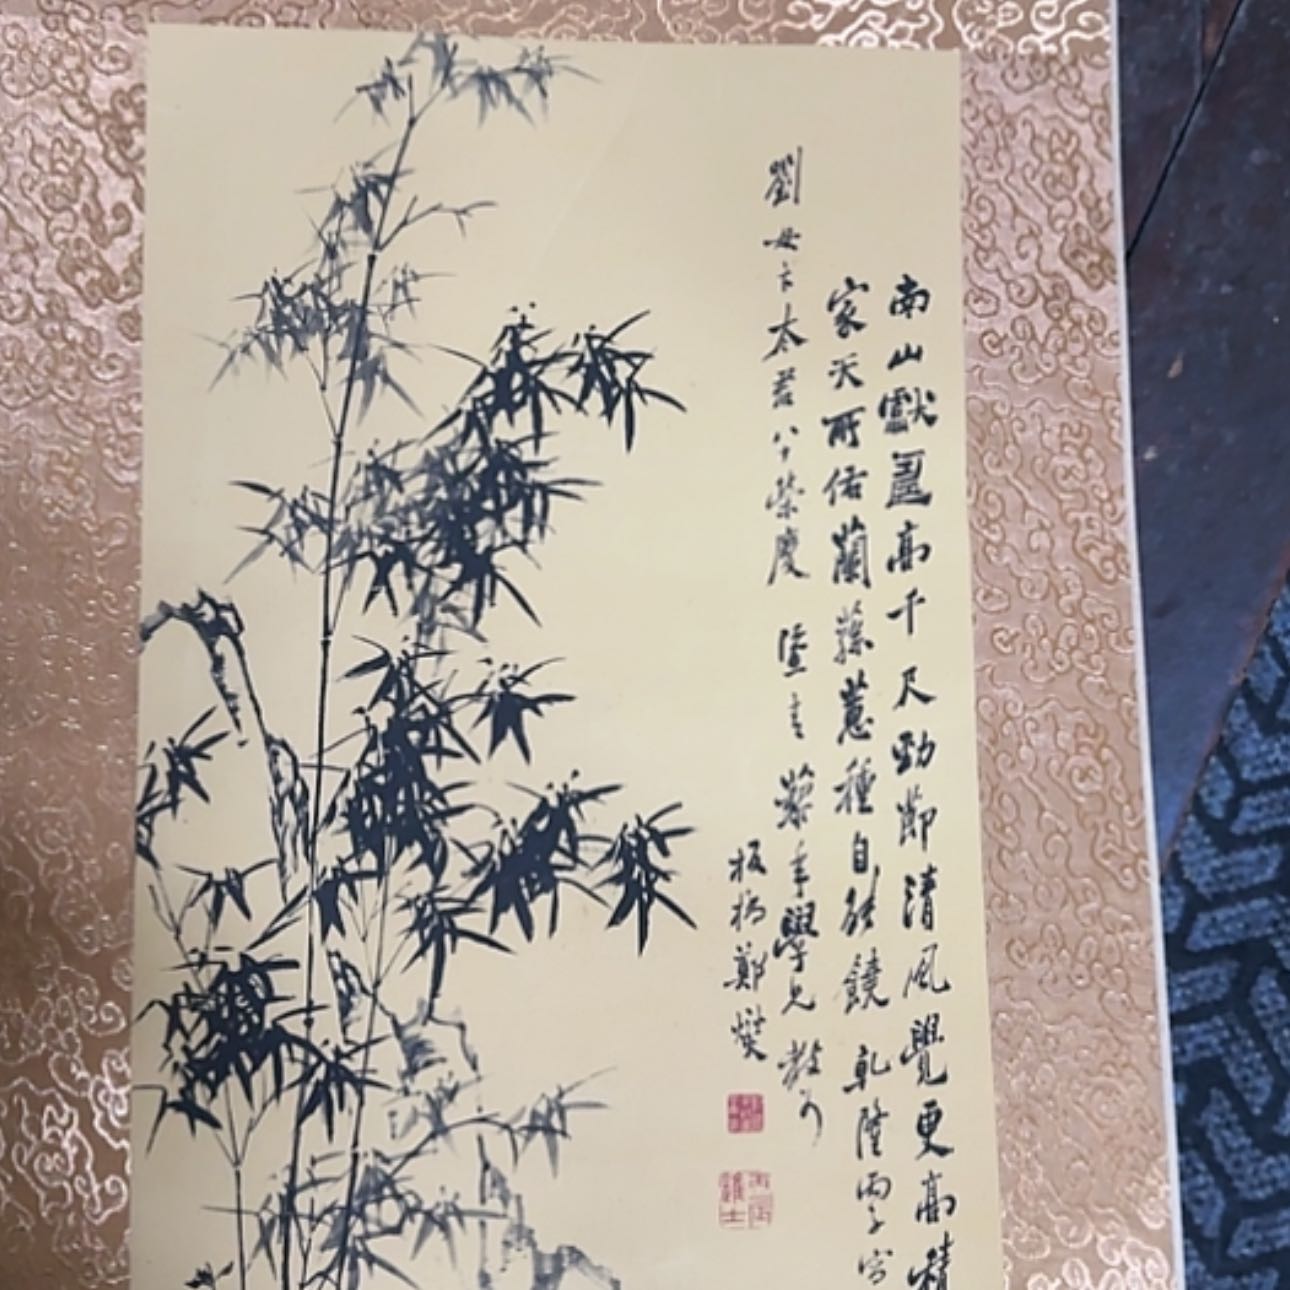 南山獻壽高千尺勁節清風覺更高積
家天所佑蘭蓀蕙種自能饒 乾隆丙子寫
劉母卞太君八十榮慶 并言 藜年學兄教可
板橋鄭燮
丙辰進士